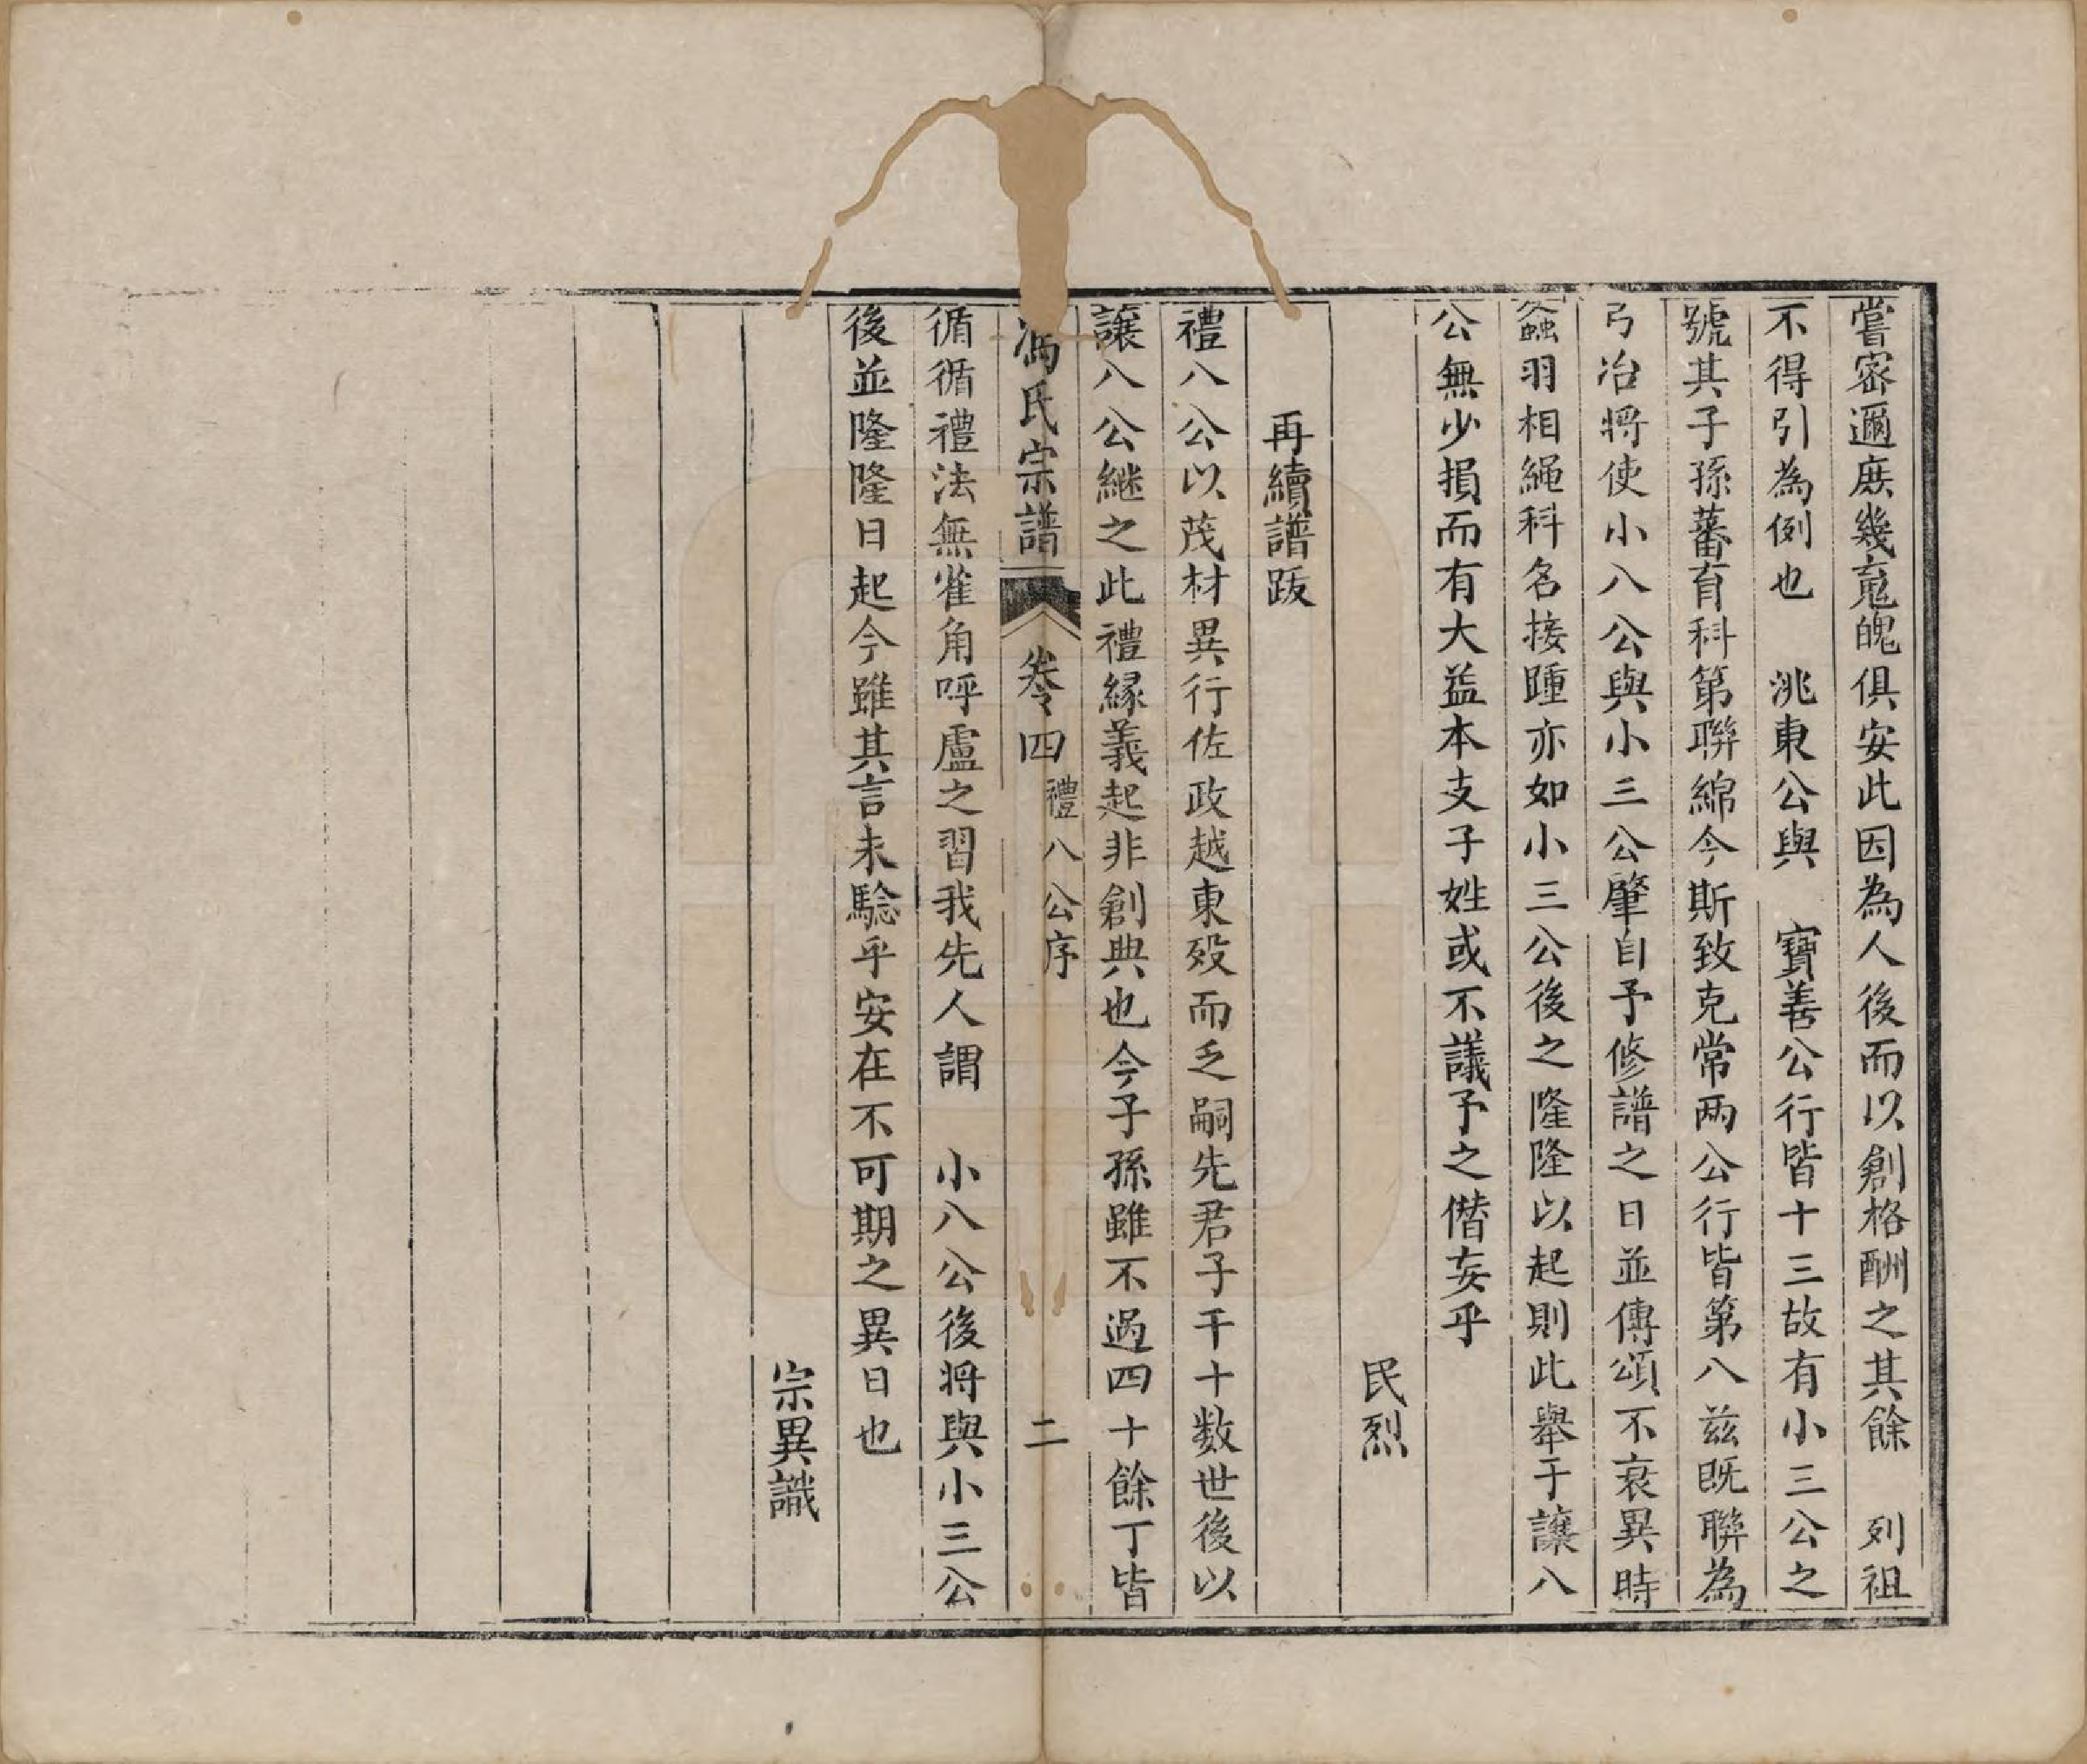 嘗密邇庶幾䰟醜俱安此因為人後而以創格酬之其餘　列祖
不得引為例也　洮東公與　寶善公行皆十三故有小三公之
號其子孫蕃育科第聯綿今斯致克常两公行皆第八兹既聯為
弓冶將使小八公與小三公肇自予修譜之日並傳頌不衰異時
螽羽相繩科名接踵亦如小三公後之隆隆以起則此舉于讓八
公無少損而有大益本支子姓或不議予之僭妄乎
民烈
再續譜跋
禮八公以茂材異行佐政越東殁而乏嗣先君子干十数世後以
讓八公継之此禮緣義起非創典也今子孫雖不過四十餘丁皆
馮氏宗譜　卷四　禮八公序　二
循循禮法無雀角呼盧之習我先人謂　小八公後将與小三公
後並隆隆日起今雖其言未騐乎安在不可期之異日也
宗異識